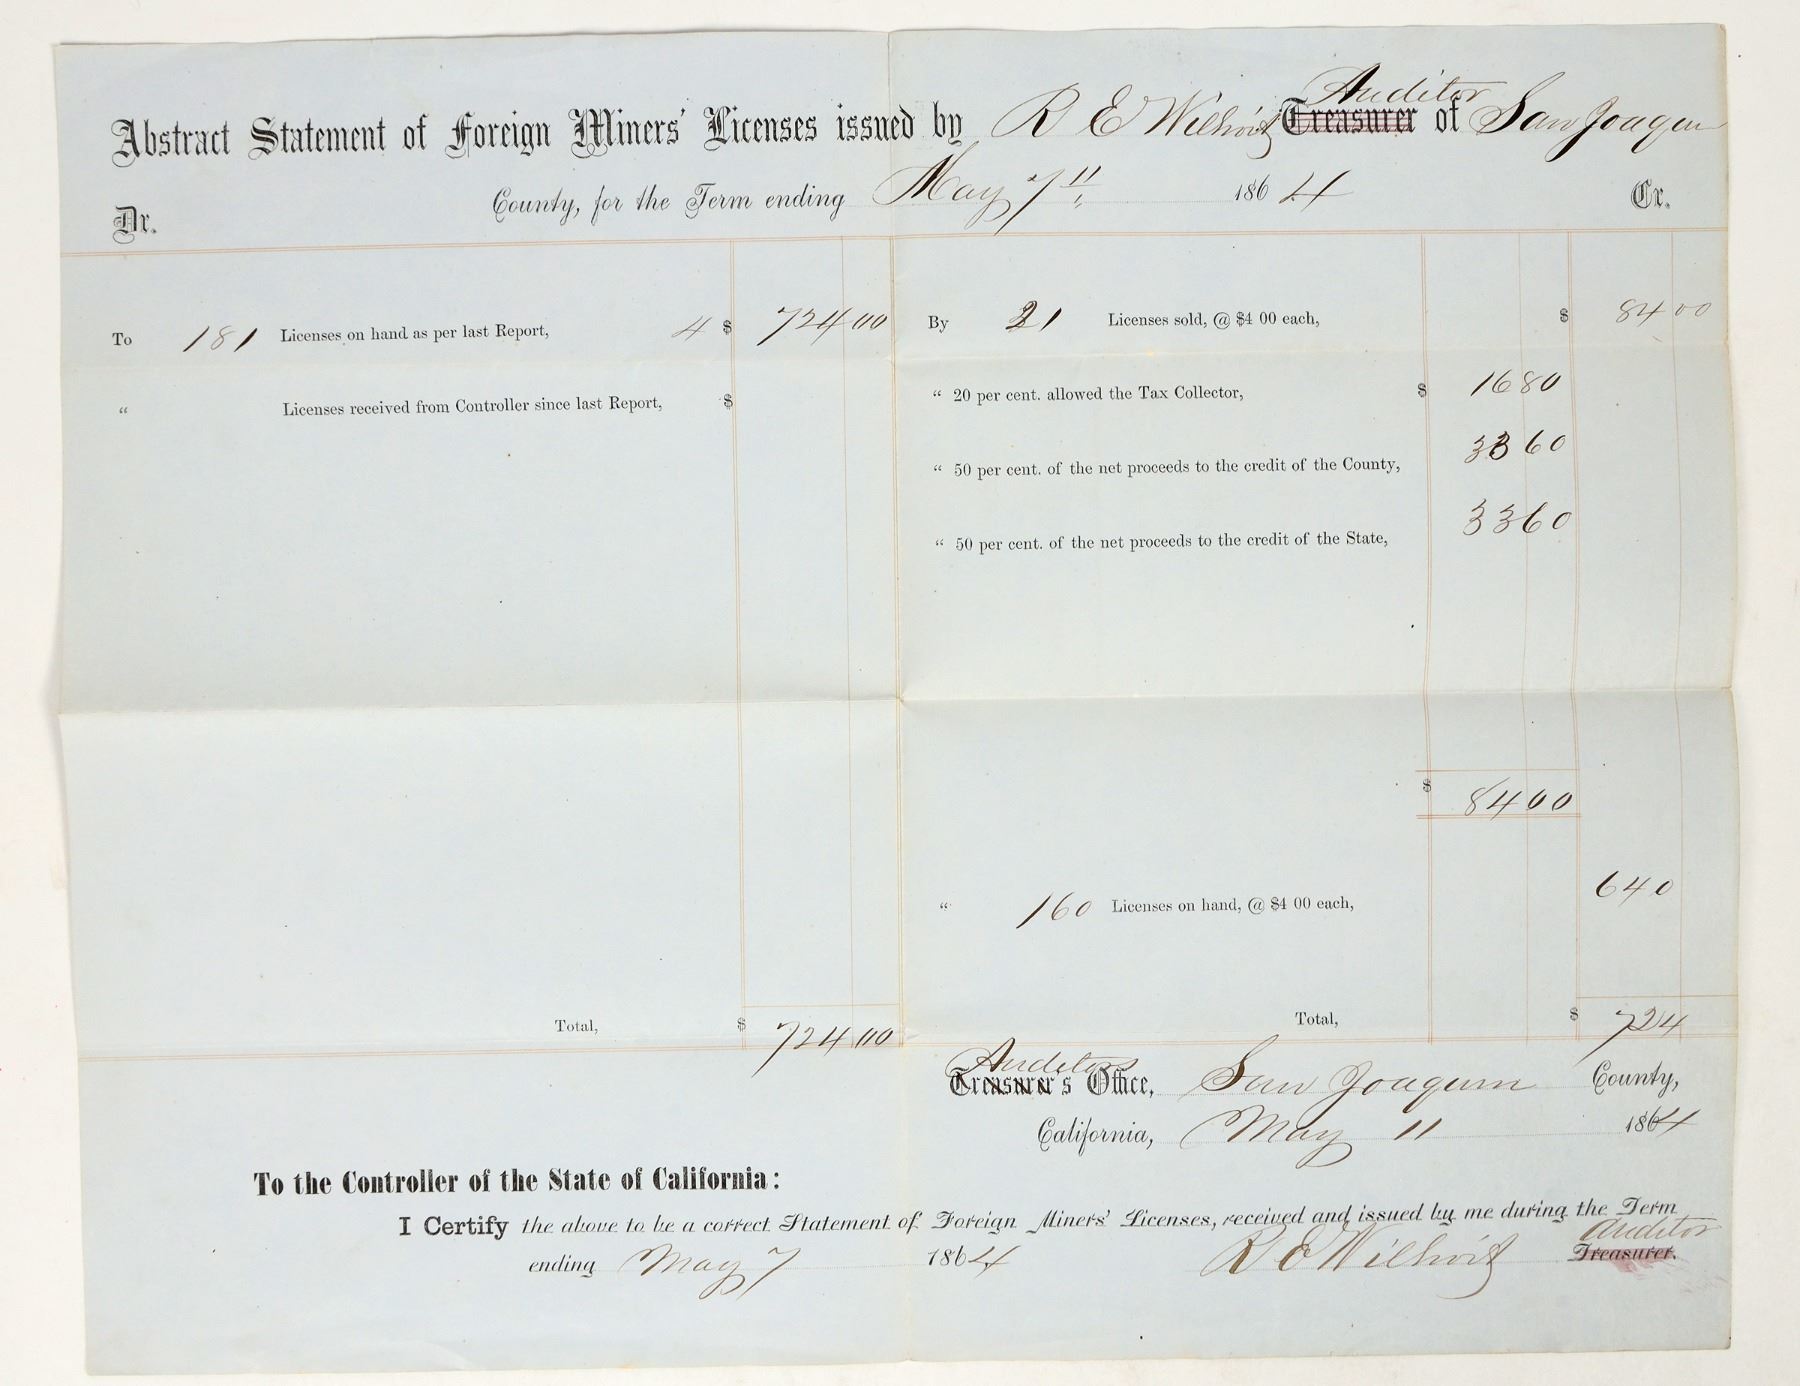 Abstract Statement of Foreign Miners' Licenses issued by R E Wilhoit Auditor Treasurer of San Joaquin
County, for the Term ending May 7" 1864
Dr. Cr.
To 181 Licenses on hand as per last Report, 4 $ 724 00
" Licenses received from Controller since last Report, $
By 21 Licenses sold, @ $4 00 each, $ 84 00
" 20 per cent. allowed the Tax Collector, $ 16 80
" 50 per cent. of the net proceeds to the credit of the County, 33 60
" 50 per cent. of the net proceeds to the credit of the State, 33 60
$ 84 00
" 160 Licenses on hand, @ $4 00 each, 640
Total, $ 724 00
Total, $ 724
Auditors Treasurer's Office, San Joaquin County,
California, May 11 1864
To the Controller of the State of California:
I Certify the above to be a correct Statement of Foreign Miners' Licenses, received and issued by me during the Term
ending May 7 1864 R E Wilhoit Auditor Treasurer.